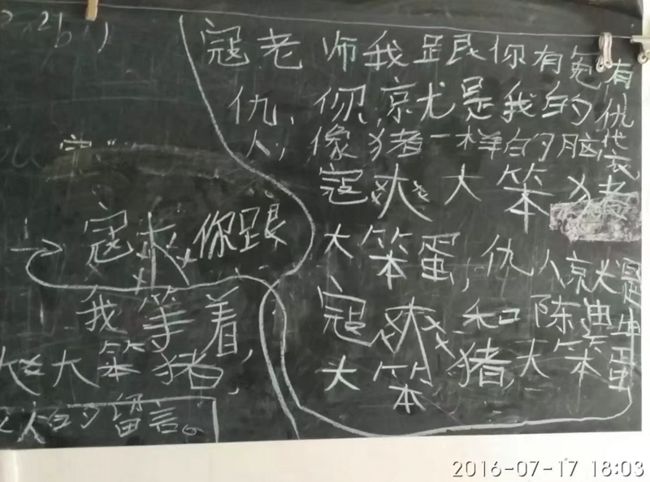 寇老师我跟你有冤有
仇,你就是我的仇
人,像猪一样的脑袋
寇爽大笨猪
大笨蛋,仇人就是
寇爽和陈典
大笨猪,大笨蛋
寇爽你跟
我等着,
大笨猪,
人的留言。
2016-07-17 18:03